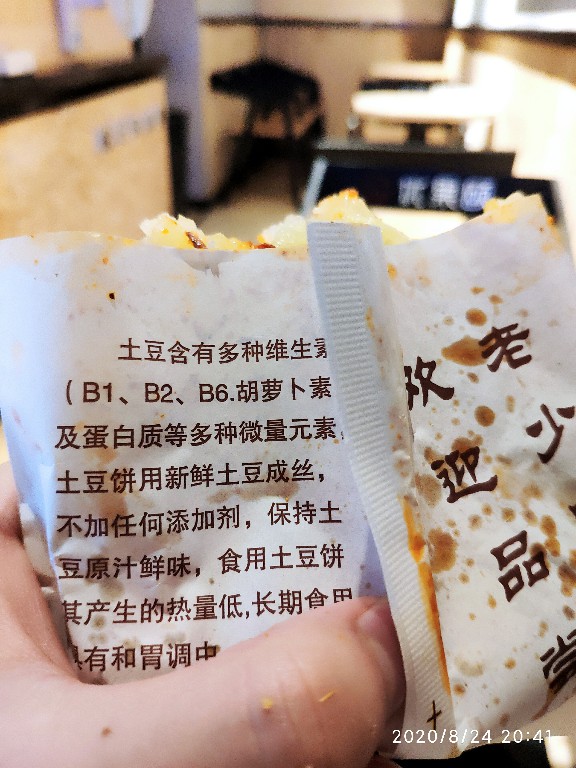 土豆含有多种维生素
（B1、B2、B6.胡萝卜素
及蛋白质等多种微量元素,
土豆饼用新鲜土豆成丝，
不加任何添加剂，保持土
豆原汁鲜味，食用土豆饼
其产生的热量低,长期食用
具有和胃调中
老少
迎品尝
2020/8/24 20:41